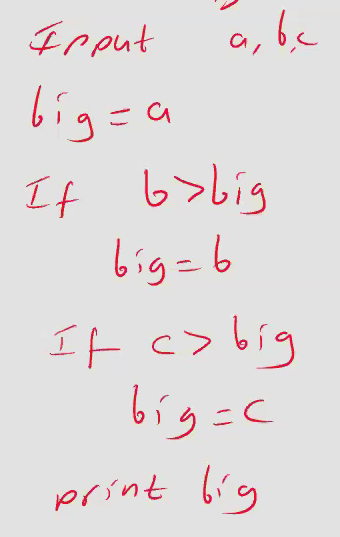 Input a, b, c
big = a
If b > big
big = b
If c > big
big = c
print big